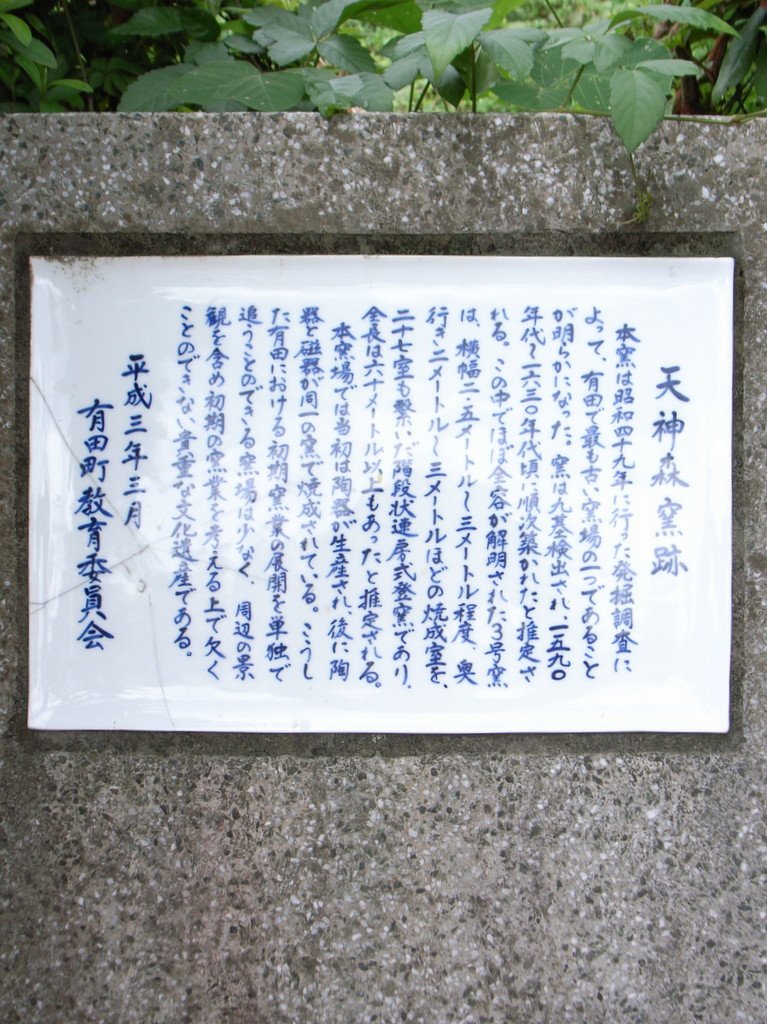 天神森窯跡
本窯は昭和四十九年に行った発掘調査に
よって、有田で最も古い窯場の一つであること
が明らかになった。窯は九基検出され、一五九〇
年代～一六三〇年代頃に順次築かれたと推定さ
れる。この中でほぼ全容が解明された3号窯
は、横幅二・五メートル～三メートル程度、奥
行き二メートル～三メートルほどの焼成室を、
二十七室も繋いだ階段状連房式登窯であり、
全長は六十メートル以上もあったと推定される。
本窯場では当初は陶器が生産され、後に陶
器と磁器が同一の窯で焼成されている。こうし
た有田における初期窯業の展開を単独で
追うことのできる窯場は少なく、周辺の景
観を含め初期の窯業を考える上で欠く
ことのできない貴重な文化遺産である。
平成三年三月
有田町教育委員会